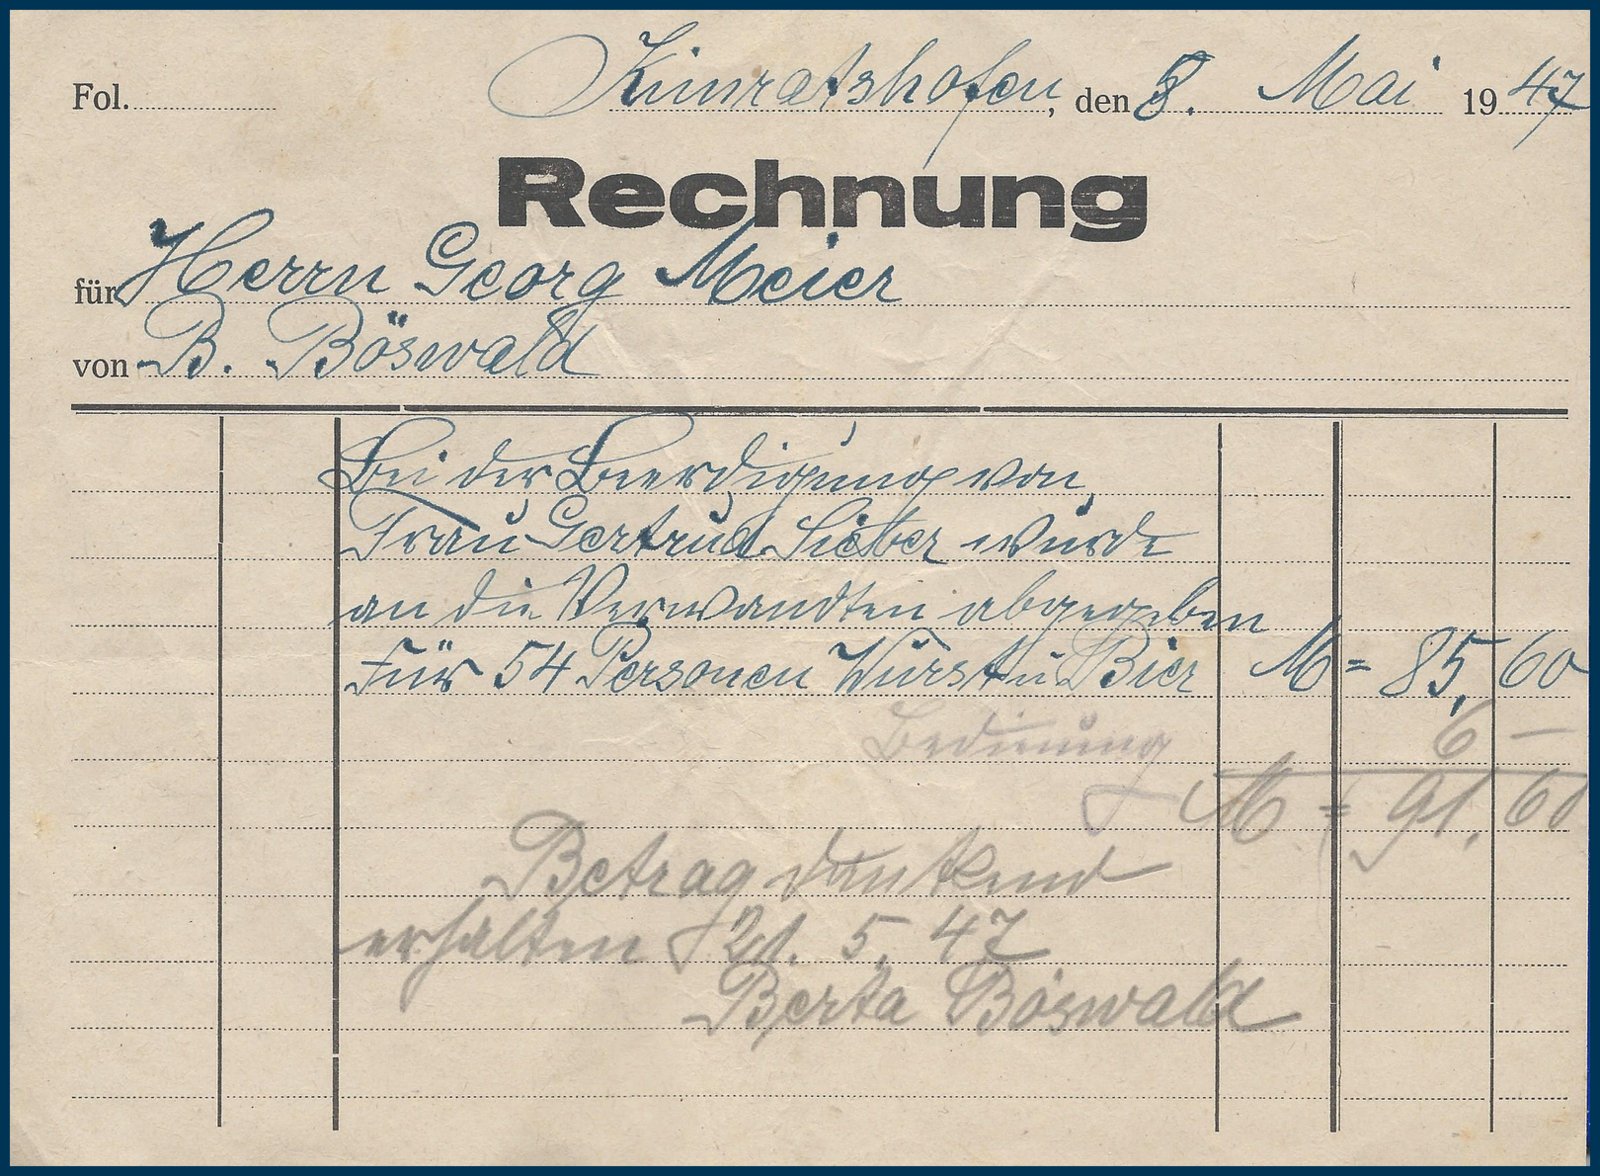 Fol. Kimratshofen, den 8. Mai 1947
Rechnung
für Herrn Georg Meier
von B. Böswald
Bei der Beerdigung von
Frau Gertrud Sieber wurde
an die Verwandten abgegeben
für 54 Personen Wurst u Bier M = 85,60
Bedienung 6 —
M = 91,60
Betrag dankend
erhalten 21. 5. 47
Berta Böswald